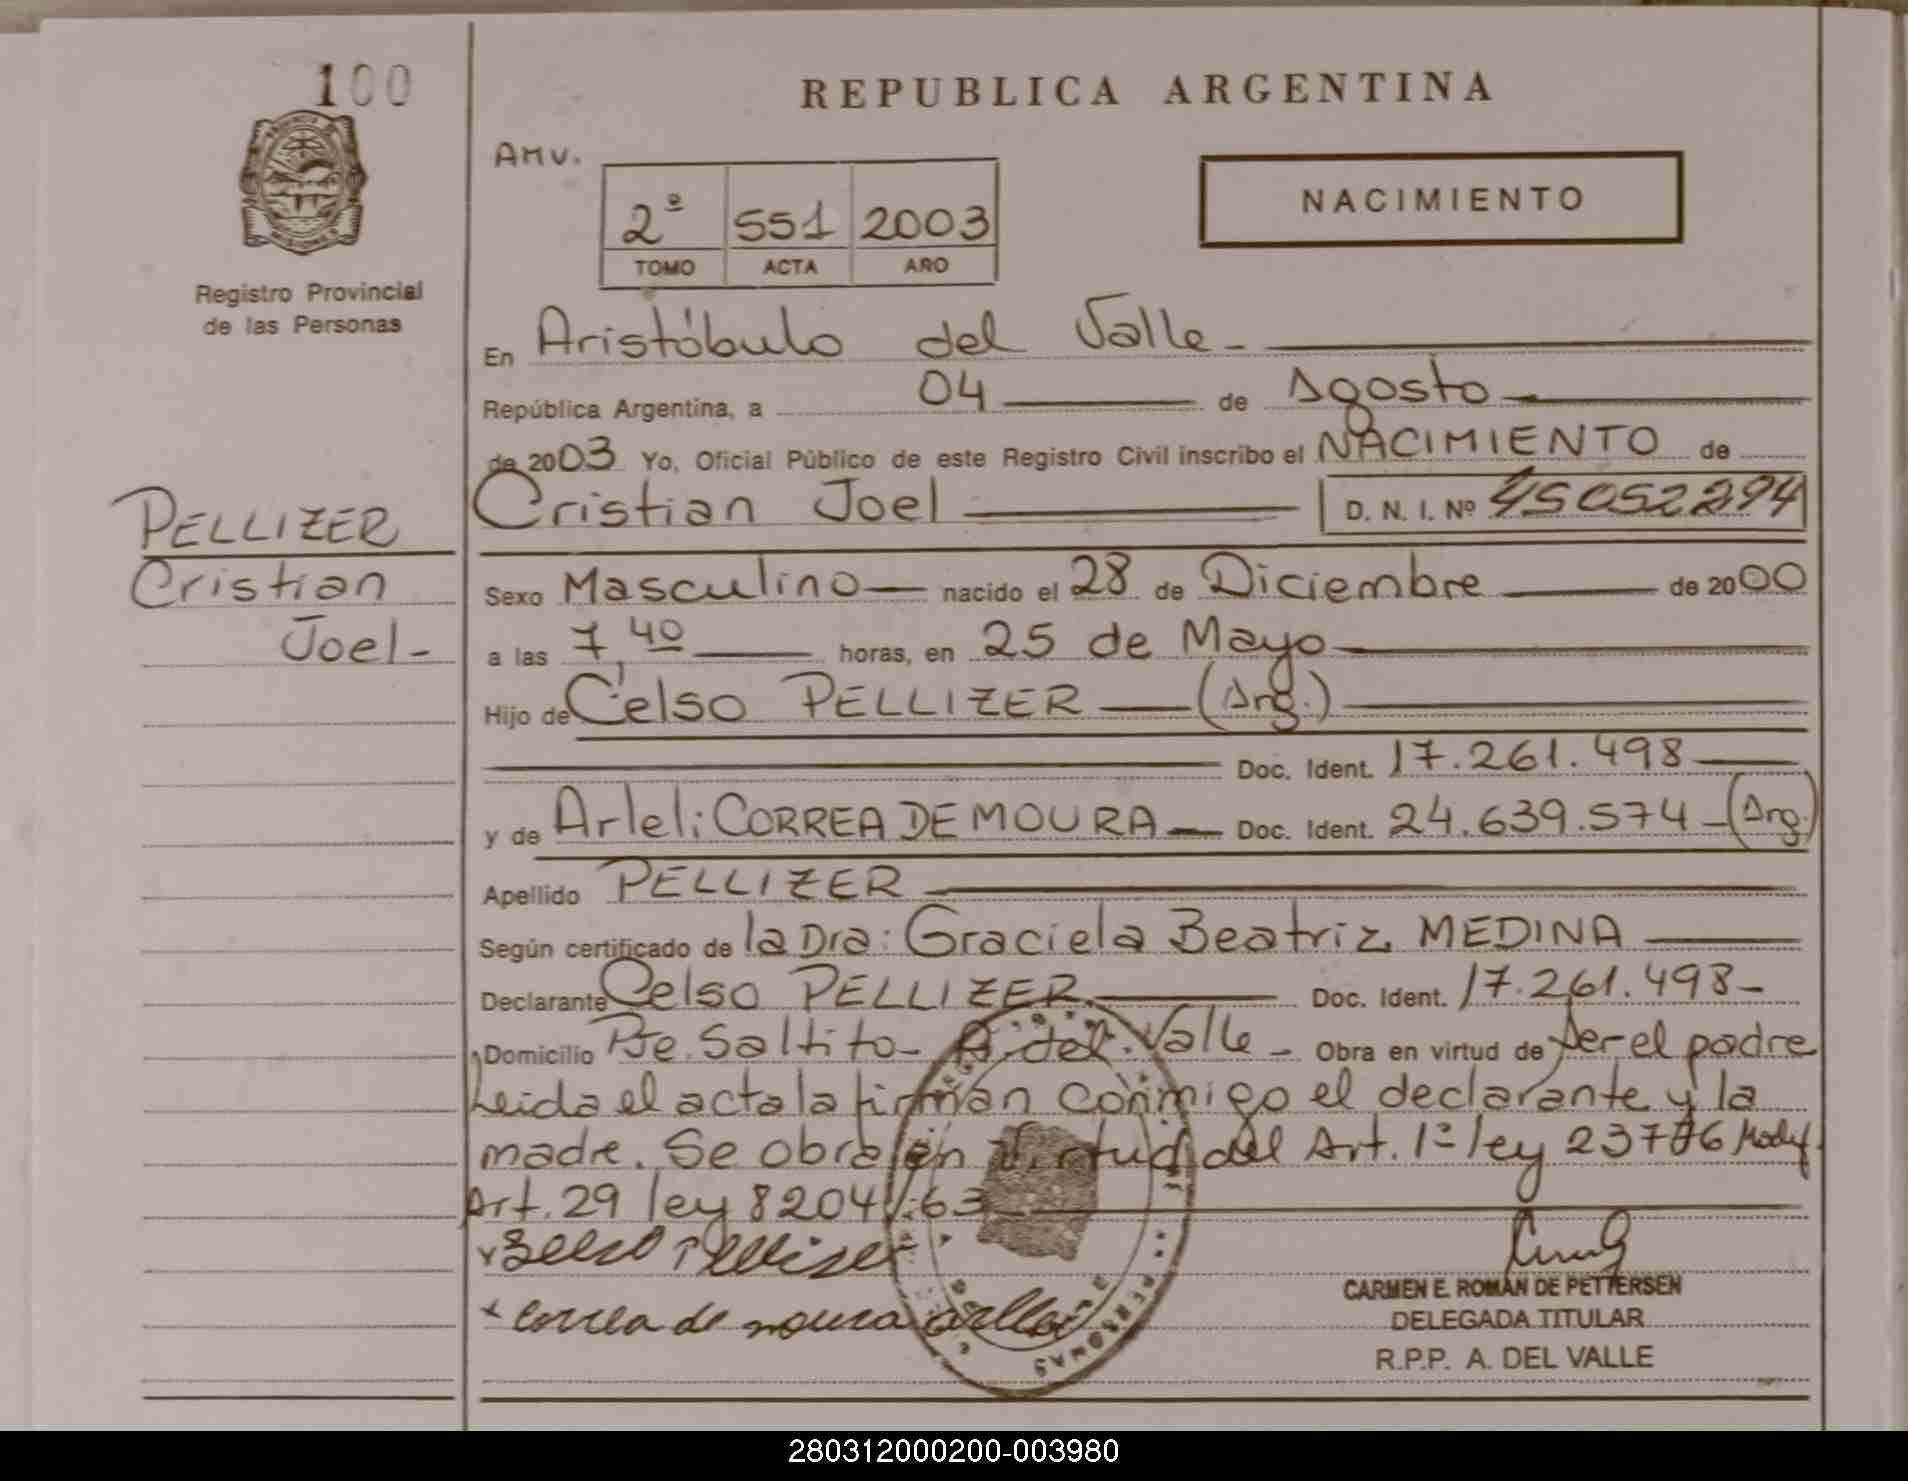 100
REPUBLICA ARGENTINA
AMV.
2º 551 2003
TOMO ACTA AÑO
NACIMIENTO
Registro Provincial
de las Personas
En Aristóbulo del Valle-
República Argentina, a 04 de Agosto
de 2003 Yo, Oficial Público de este Registro Civil inscribo el NACIMIENTO de
Cristian Joel D. N. I. Nº 45052294
PELLIZER
Cristian
Joel-
Sexo Masculino nacido el 28 de Diciembre de 2000
a las 7,40 horas, en 25 de Mayo
Hijo de Celso PELLIZER (Arg.)
Doc. Ident. 17.261.498
y de Arleli CORREA DE MOURA Doc. Ident. 24.639.574 (Arg.)
Apellido PELLIZER
Según certificado de la Dra: Graciela Beatriz MEDINA
Declarante Celso PELLIZER Doc. Ident. 17.261.498-
Domicilio Pje. Saltito- A. del Valle- Obra en virtud de ser el padre
Leida el acta la firman conmigo el declarante y la
madre. Se obra en virtud del Art. 1º ley 23776 Modif.
Art. 29 ley 8204/63
x Celso Pellizer
x Correa de moura arleli
CARMEN E. ROMAN DE PETTERSEN
DELEGADA TITULAR
R.P.P. A. DEL VALLE
PERSONAS
280312000200-003980